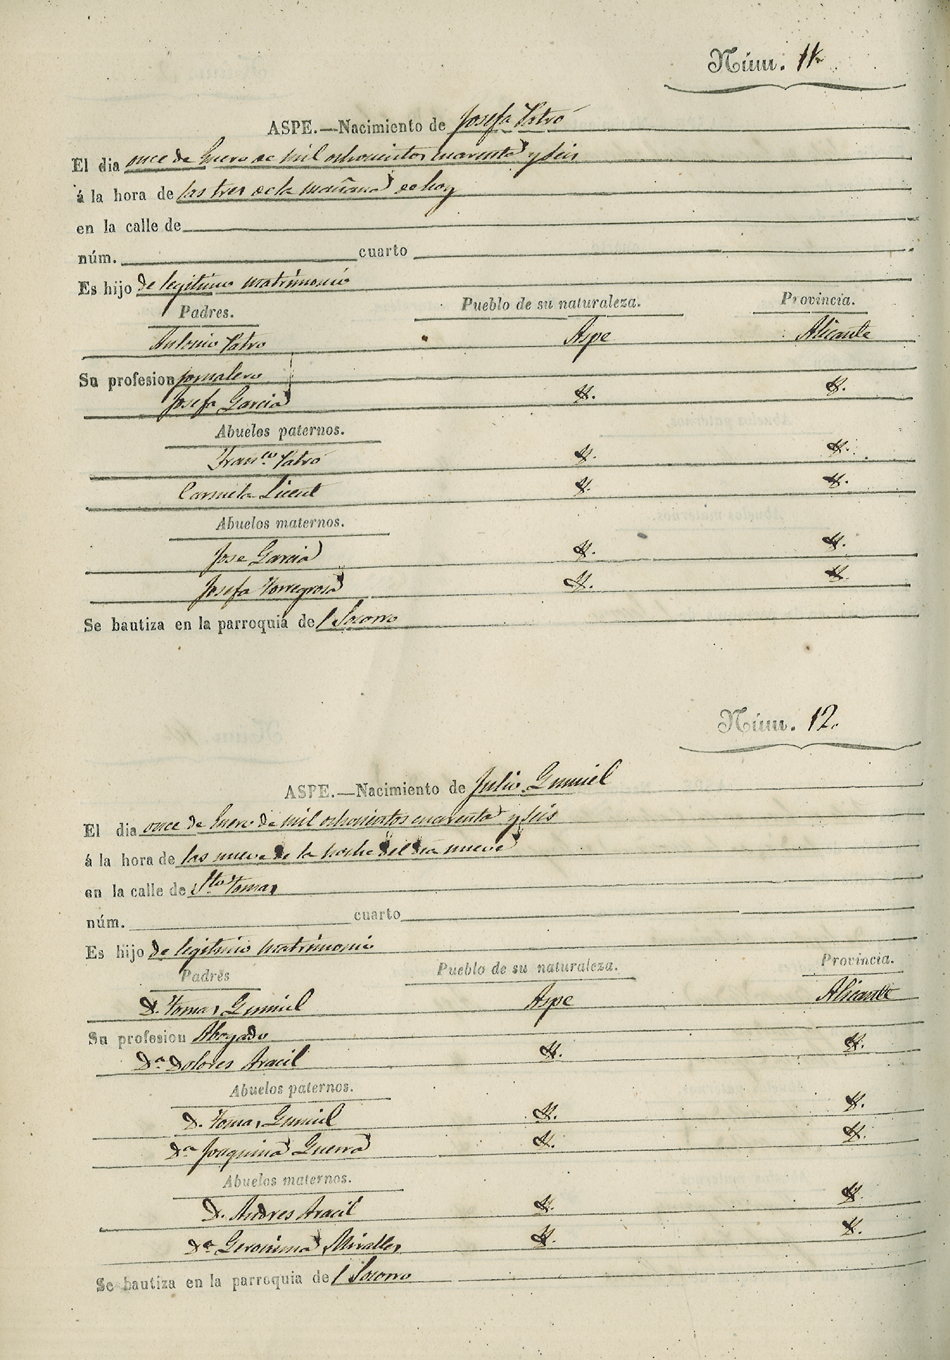 Núm. 11.
ASPE.—Nacimiento de Josefa Patró
El dia once de Enero de mil ochocientos cuarenta y seis
á la hora de las tres de la mañana de hoy
en la calle de
núm. cuarto
Es hijo de legitimo matrimonio
Padres. Pueblo de su naturaleza. Provincia.
Antonio Patro Aspe Alicante
Su profesion jornalero
Josefa Garcia Yd. Yd.
Abuelos paternos.
Franco. Patró Yd. Yd.
Carmela Yd. Yd.
Abuelos maternos.
Jose Garcia Yd. Yd.
Josefa Torregrosa Yd. Yd.
Se bautiza en la parroquia del Socorro
Núm. 12.
ASPE.—Nacimiento de Julio Gumiel
El dia once de Enero de mil ochocientos cuarenta y seis
á la hora de las nueve de la noche del dia nueve
en la calle de Sto Tomas
núm. cuarto
Es hijo de legitimo matrimonio
Padres Pueblo de su naturaleza. Provincia.
D. Tomas Gumiel Aspe Alicante
Su profesion Abogado
Da Dolores Aracil Yd. Yd.
Abuelos paternos.
D. Tomas Gumiel Yd. Yd.
Da Joaquina Guerra Yd. Yd.
Abuelos maternos.
D. Andres Aracil Yd. Yd.
Da Geronima Miralles Yd. Yd.
Se bautiza en la parroquia del Socorro